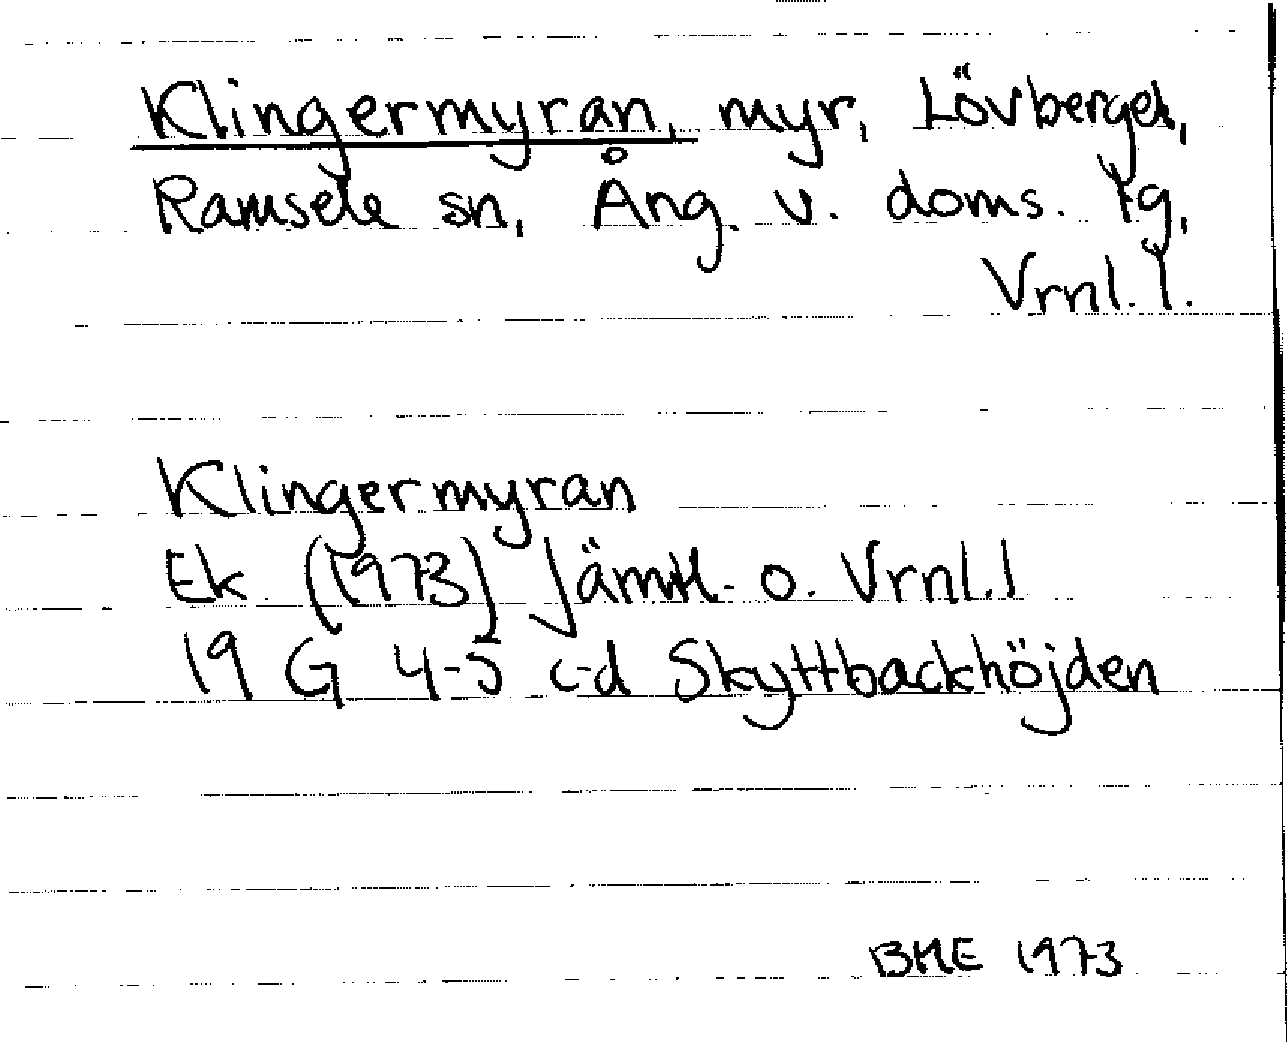 Klingermyran, myr, Lövberget,
Ramsele sn, Ång. v. doms. tg,
Vrnl. l.
Klingermyran
Ek (1973) Jämtl. o. Vrnl. l
19 G 4-5 c-d Skyttbackhöjden
BME 1973